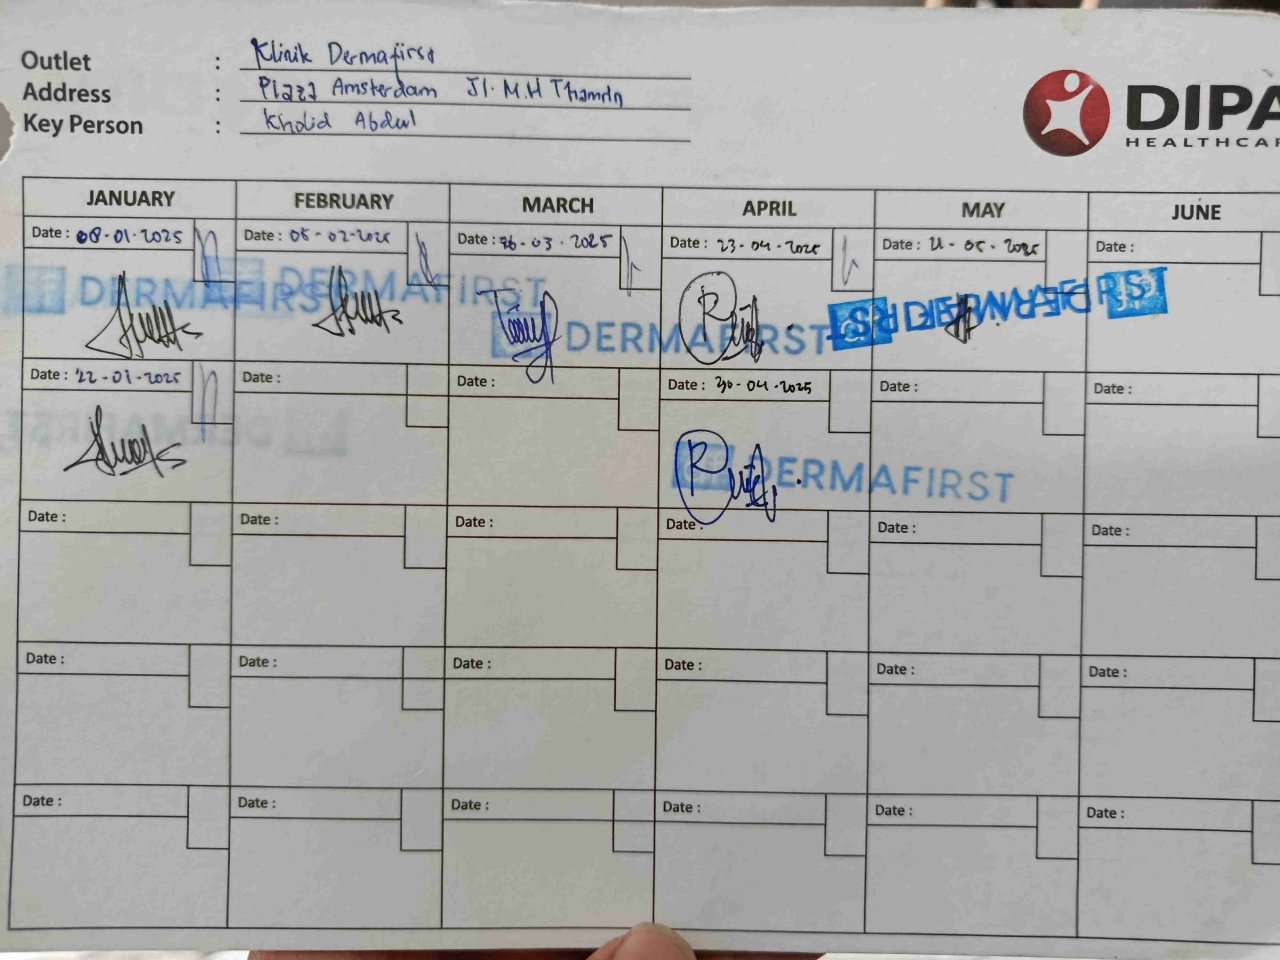 Outlet : Klinik Dermafirst
Address : Plaza Amsterdam Jl. M.H Thamrin
Key Person : Kholid Abdul
DIPA
HEALTHCAR
JANUARY FEBRUARY MARCH APRIL MAY JUNE
Date : 08-01-2025 Date : 05-02-2025 Date : 26-03-2025 Date : 23-04-2025 Date : 21-05-2025 Date :
DERMAFIRST DERMAFIRST DERMAFIRST DERMAFIRST DERMAFIRST
Date : 22-01-2025 Date : Date : Date : 30-04-2025 Date : Date :
DERMAFIRST DERMAFIRST
Date : Date : Date : Date : Date : Date :
Date : Date : Date : Date : Date : Date :
Date : Date : Date : Date : Date : Date :